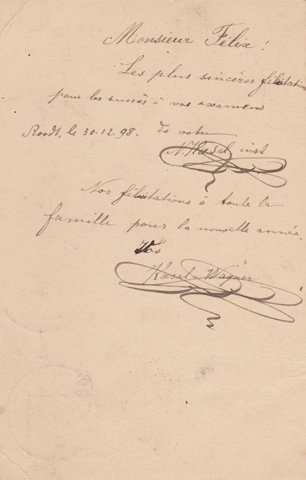 Monsieur Félix!
Les plus sincères félicitations
pour les succès à vos examens
Roodt, le 30.12.98. de votre
inst
Nos félicitations à toute la
famille pour la nouvelle année
Wagner